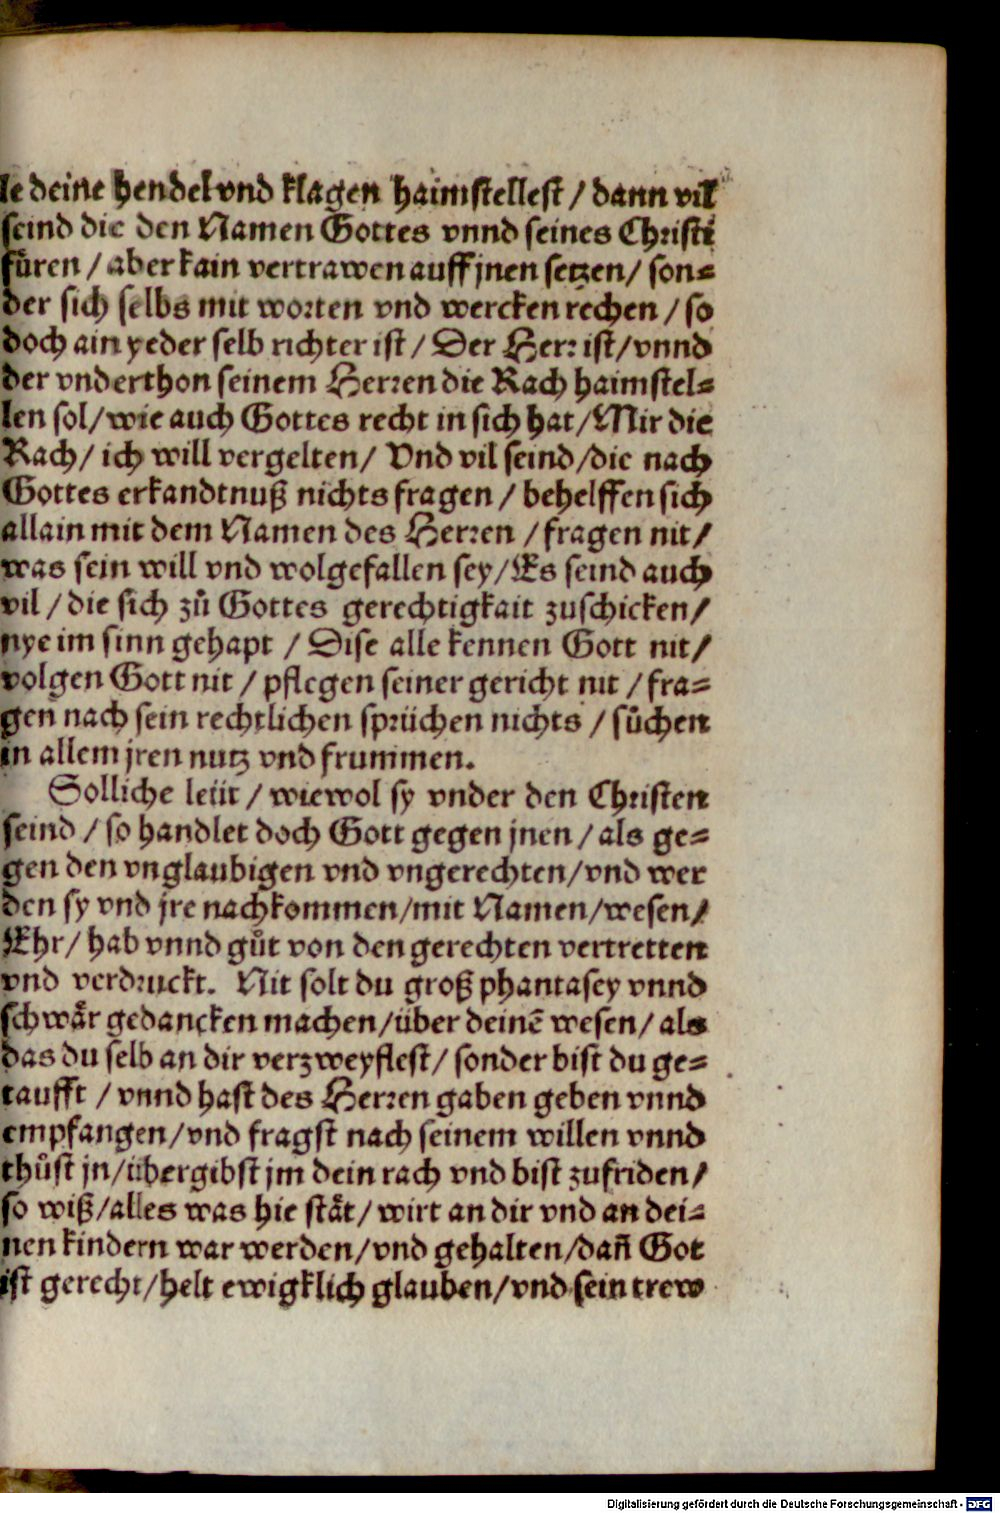 le deine hendel vnd klagen haimstellest / dann vil
seind die den Namen Gottes vnnd seines Christi
fuͤren / aber kain vertrawen auff jnen setzen / son⸗
der sich selbs mit worten vnd wercken rechen / so
doch ain yeder selb richter ist / Der Herr ist / vnnd
der vnderthon seinem Herren die Rach haimstel⸗
len sol / wie auch Gottes recht in sich hat / Mir die
Rach / ich will vergelten / Vnd vil seind / die nach
Gottes erkandtnuß nichts fragen / behelffen sich
allain mit dem Namen des Herren / fragen nit /
was sein will vnd wolgefallen sey / Es seind auch
vil / die sich zů Gottes gerechtigkait zuschicken /
nye im sinn gehapt / Dise alle kennen Gott nit /
volgen Gott nit / pflegen seiner gericht nit / fra⸗
gen nach sein rechtlichen sprüchen nichts / sůchen
in allem jren nutz vnd frummen.
Solliche leüt / wiewol sy vnder den Christen
seind / so handlet doch Gott gegen jnen / als ge⸗
gen den vnglaubigen vnd vngerechten / vnd wer
den sy vnd jre nachkommen / mit Namen / wesen /
Ehr / hab vnnd gůt von den gerechten vertretten
vnd verdruckt. Nit solt du groß phantasey vnnd
schwaͤr gedancken machen / über deinē wesen / als
das du selb an dir verzweyflest / sonder bist du ge⸗
taufft / vnnd hast des Herren gaben geben vnnd
empfangen / vnd fragst nach seinem willen vnnd
thůst jn / übergibst jm dein rach vnd bist zufriden /
so wiß / alles was hie staͤt / wirt an dir vnd an dei⸗
nen kindern war werden / vnd gehalten / dañ Got
ist gerecht / helt ewigklich glauben / vnd sein trew
Digitalisierung gefördert durch die Deutsche Forschungsgemeinschaft - DFG